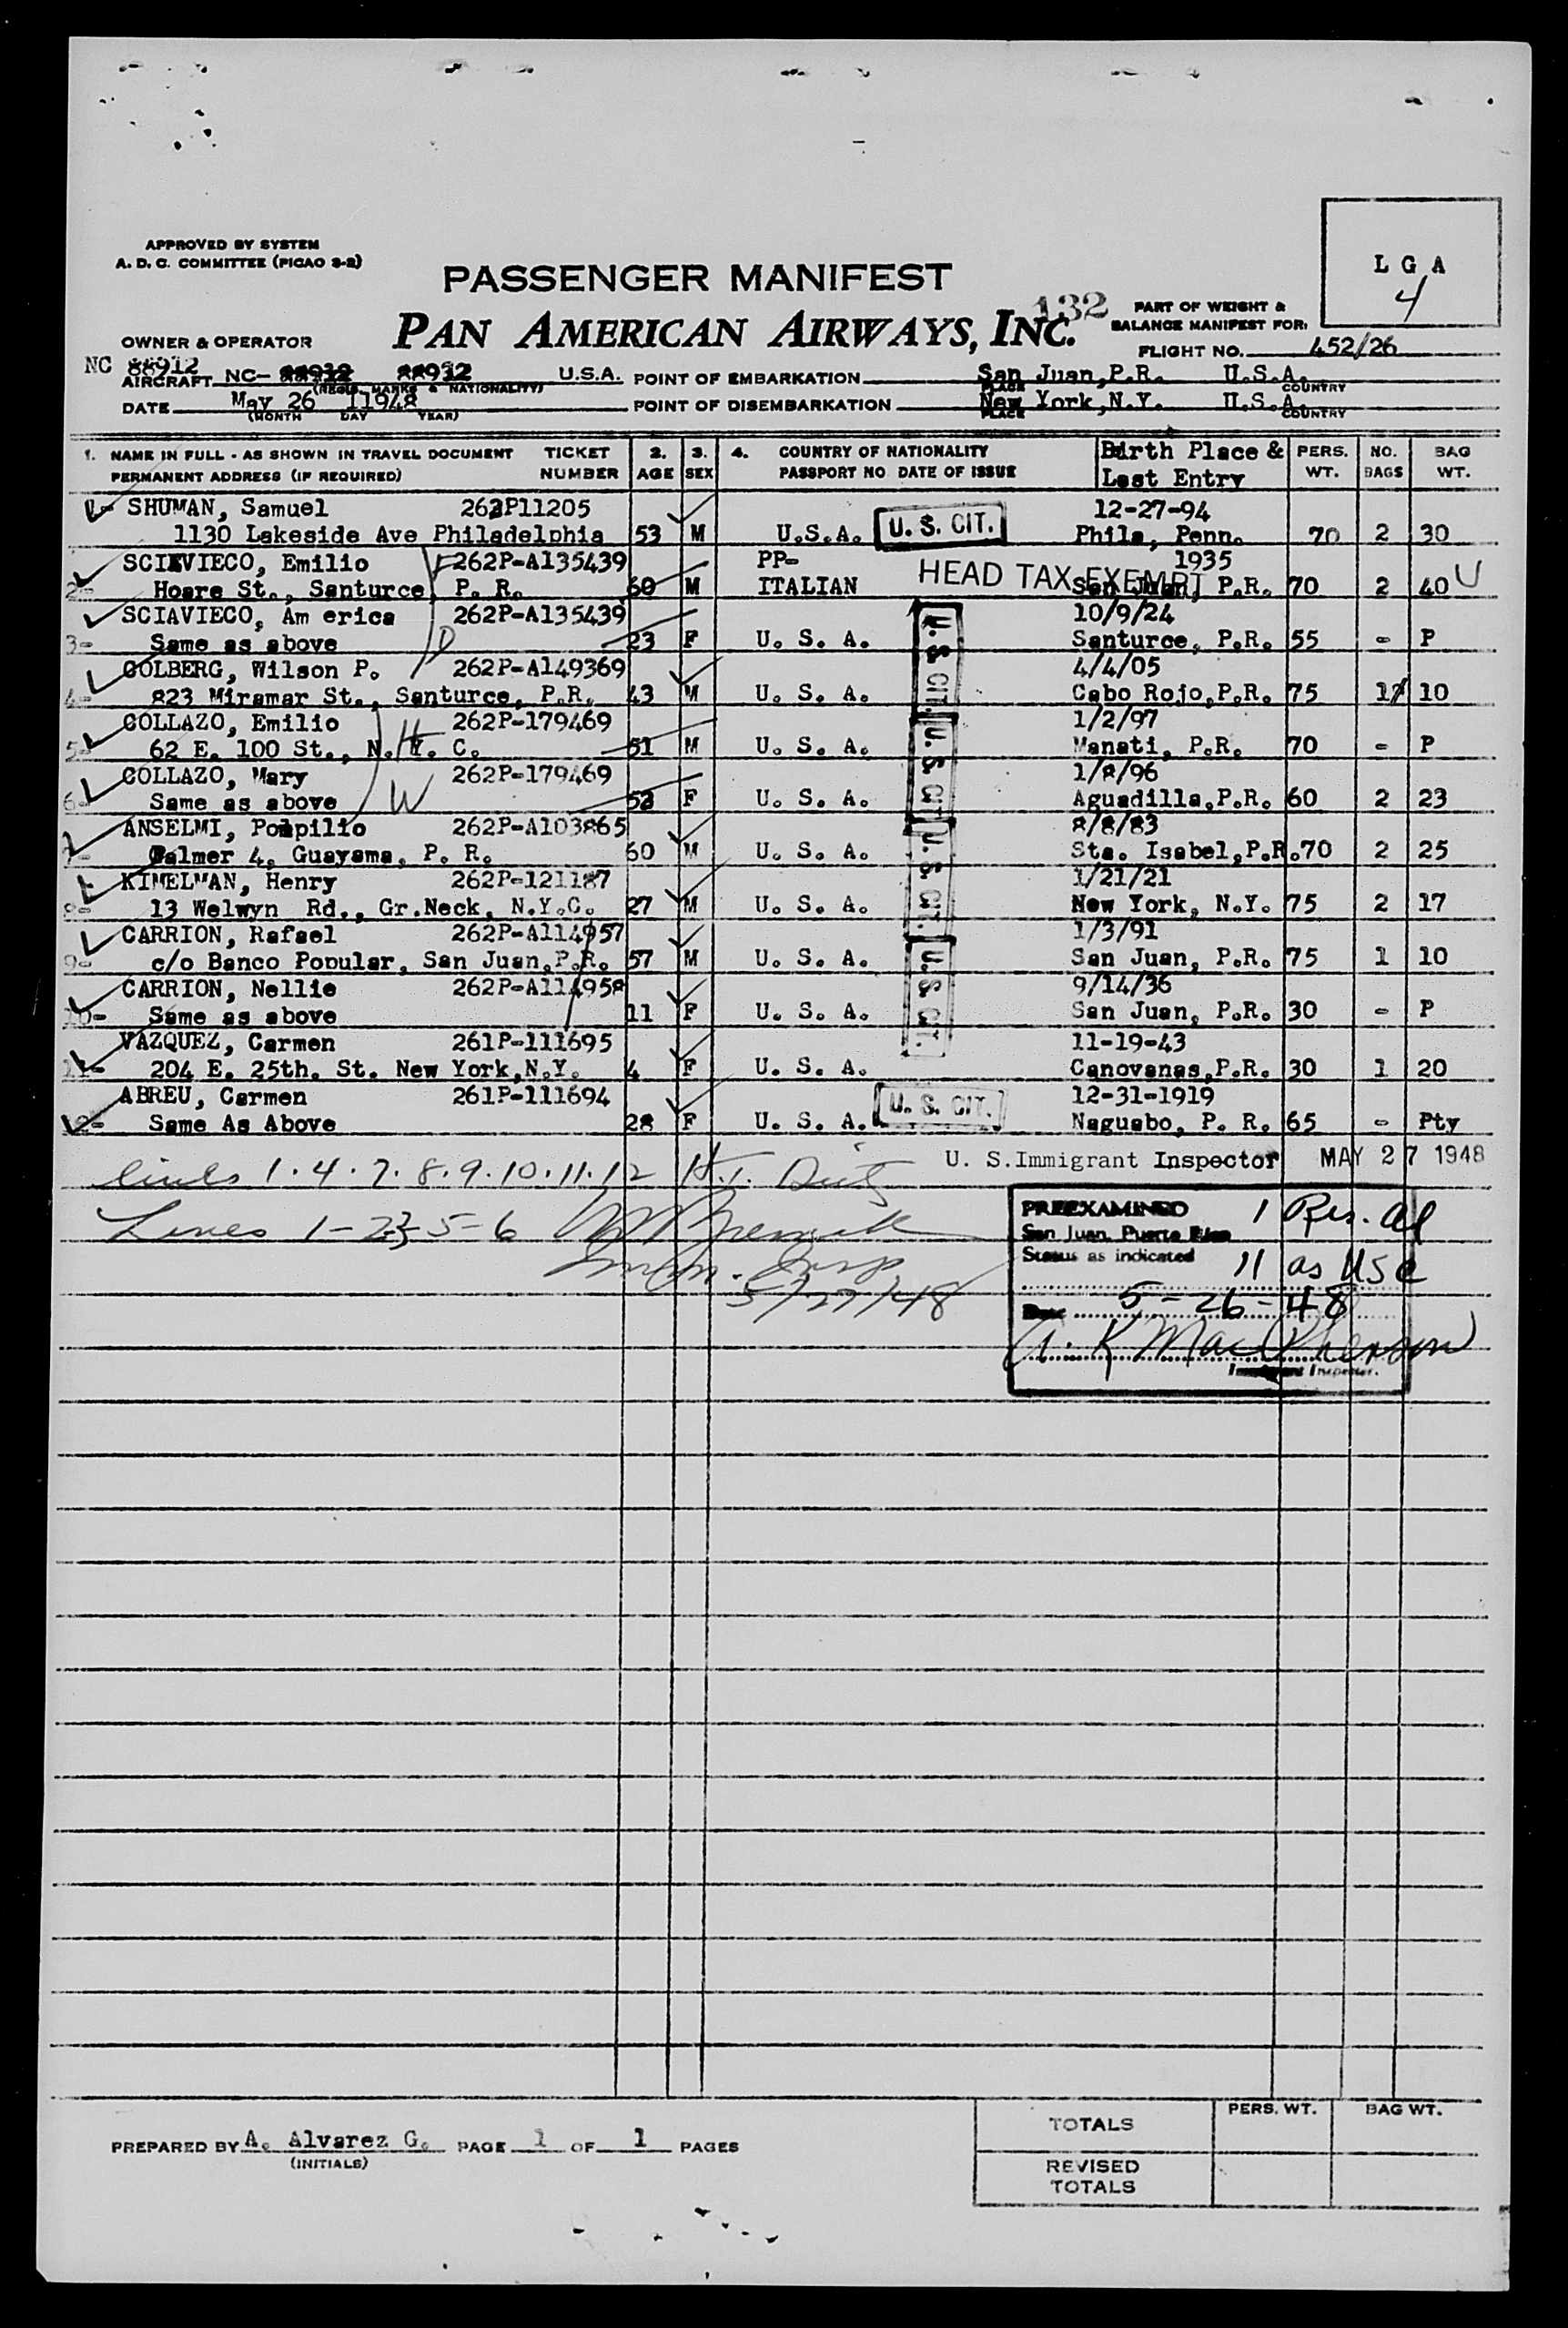 APPROVED BY SYSTEM
A. D. C. COMMITTEE (PICAO 3-2)
L G A
4
PASSENGER MANIFEST
132
PAN AMERICAN AIRWAYS, INC.
PART OF WEIGHT &
BALANCE MANIFEST FOR:
OWNER & OPERATOR
FLIGHT NO. 452/26
NC 88912
AIRCRAFT NC- 88912 U.S.A. POINT OF EMBARKATION San Juan,P.R. U.S.A.
(REGIS. MARKS & NATIONALITY) PLACE COUNTRY
DATE May 26 11948 POINT OF DISEMBARKATION New York,N.Y. U.S.A.
(MONTH DAY YEAR) PLACE COUNTRY
1. NAME IN FULL - AS SHOWN IN TRAVEL DOCUMENT TICKET 2. 3. 4. COUNTRY OF NATIONALITY Birth Place & PERS. NO. BAG
PERMANENT ADDRESS (IF REQUIRED) NUMBER AGE SEX PASSPORT NO DATE OF ISSUE Last Entry WT. BAGS WT.
1- SHUMAN, Samuel 262P11205 12-27-94
1130 Lakeside Ave Philadelphia 53 M U.S.A. U. S. CIT. Phila, Penn. 70 2 30
SCIAVIECO, Emilio 262P-A135439 PP- 1935
2- Hoare St., Santurce, P. R. 60 M ITALIAN HEAD TAX EXEMPT San Juan, P.R. 70 2 40 U
SCIAVIECO, Am erica 262P-A135439 10/9/24
3- Same as above D 23 F U. S. A. U. S. CIT. Santurce, P.R. 55 - P
GOLBERG, Wilson P. 262P-A149369 4/4/05
4- 823 Miramar St., Santurce, P.R. 43 M U. S. A. Cabo Rojo,P.R. 75 1 10
COLLAZO, Emilio 262P-179469 1/2/97
5- 62 E. 100 St., N. Y. C. H 51 M U. S. A. U. S. CIT. Manati, P.R. 70 - P
COLLAZO, Mary 262P-179469 1/8/96
6- Same as above W 52 F U. S. A. Aguadilla,P.R. 60 2 23
ANSELMI, Pompilio 262P-A103865 8/8/83
7- Palmer 4, Guayama, P. R. 60 M U. S. A. U. S. CIT. Sta. Isabel,P.R. 70 2 25
KIMELMAN, Henry 262P-121187 1/21/21
8- 13 Welwyn Rd., Gr.Neck, N.Y.C. 27 M U. S. A. New York, N.Y. 75 2 17
CARRION, Rafael 262P-A114957 1/3/91
9- c/o Banco Popular, San Juan,P.R. 57 M U. S. A. U. S. CIT. San Juan, P.R. 75 1 10
CARRION, Nellie 262P-A114958 9/14/36
10- Same as above 11 F U. S. A. San Juan, P.R. 30 - P
VAZQUEZ, Carmen 261P-111695 11-19-43
11- 204 E. 25th. St. New York,N.Y. 4 F U. S. A. Canovanas,P.R. 30 1 20
ABREU, Carmen 261P-111694 12-31-1919
12- Same As Above 28 F U. S. A. U. S. CIT. Naguabo, P. R. 65 - Pty
lines 1. 4. 7. 8. 9. 10. 11. 12 U. S.Immigrant Inspector MAY 27 1948
Lines 1-2-3-5-6
Imm. Insp
5/27/48
PREEXAMINED 1 Res. al
San Juan, Puerto Rico
Status as indicated 11 as USC
Date 5-26-48
A. K MacPherson
Immigrant Inspector.
TOTALS PERS. WT. BAG WT.
PREPARED BY A. Alvarez G. PAGE 1 OF 1 PAGES
(INITIALS)
REVISED
TOTALS